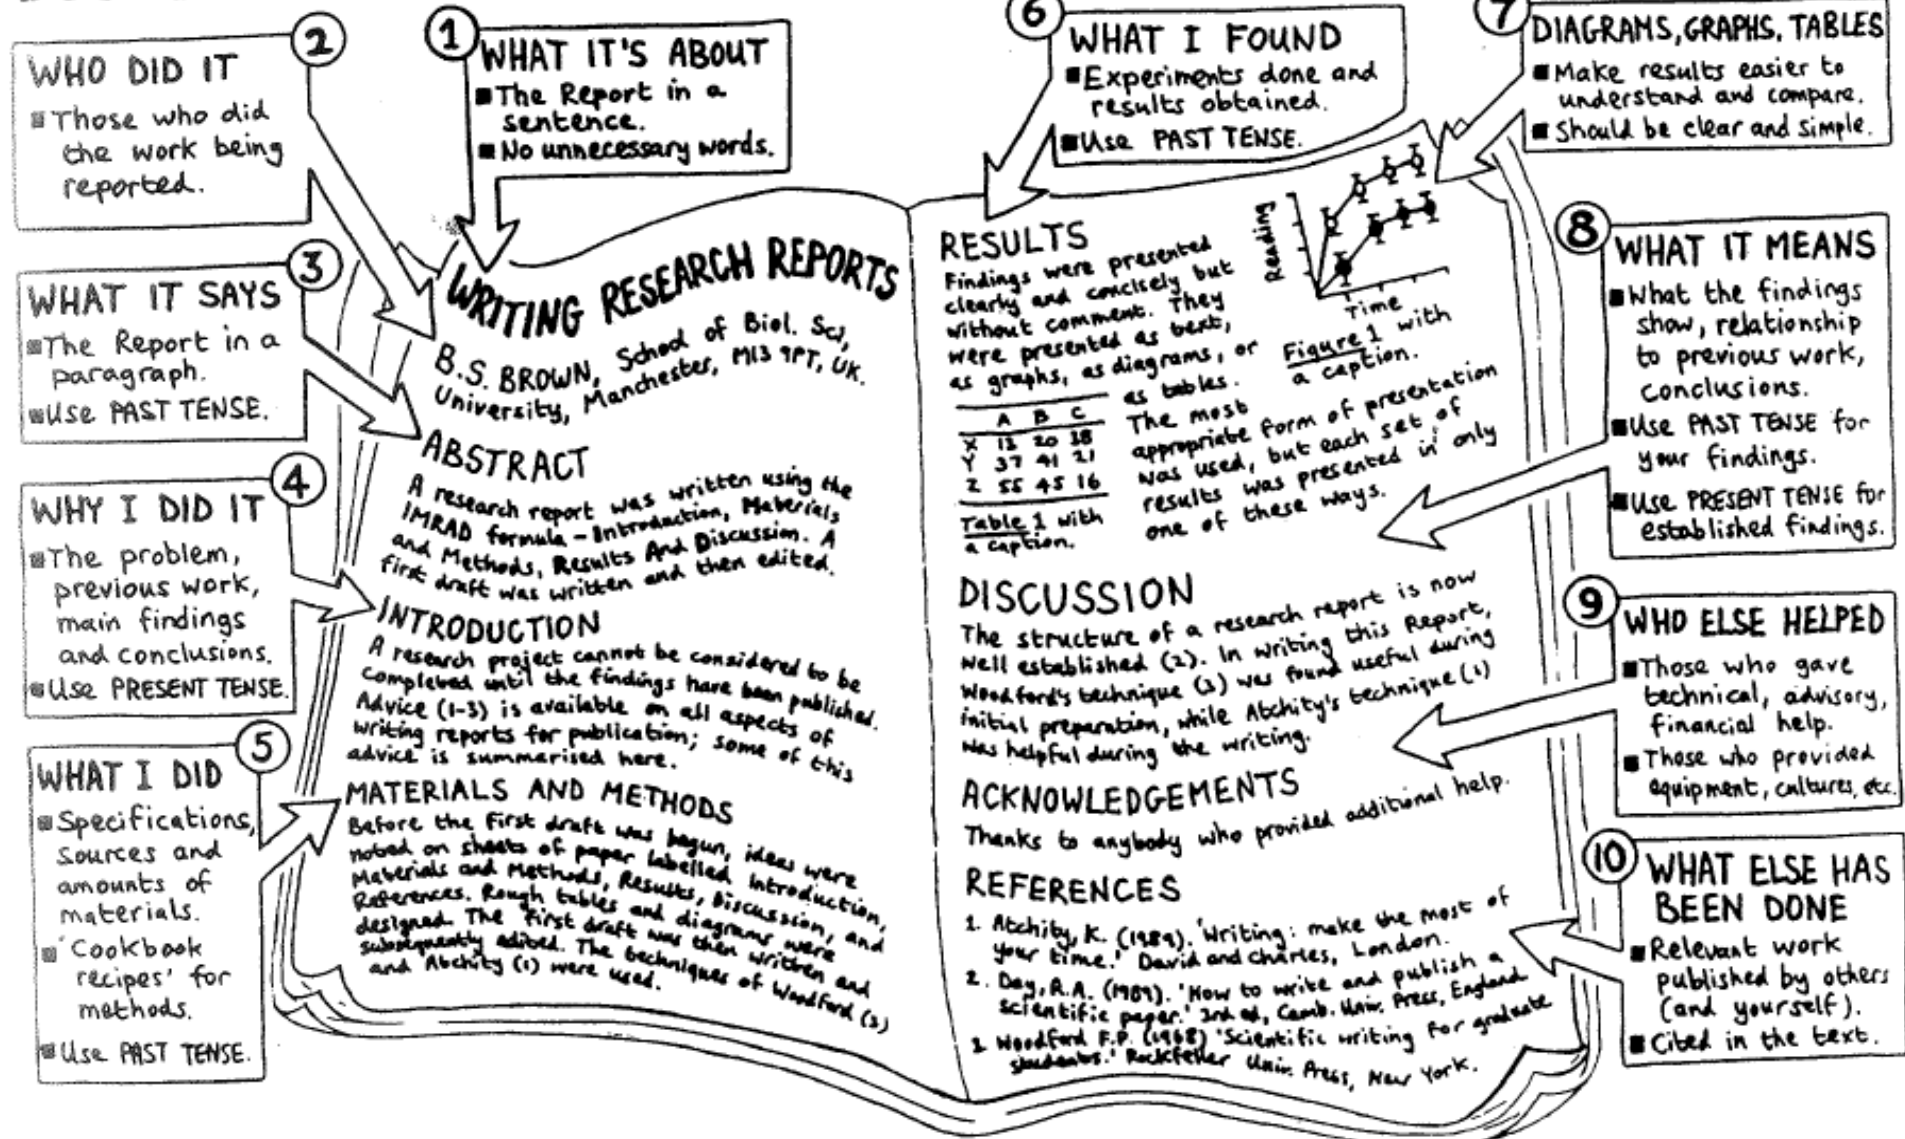 2
WHO DID IT
Those who did
the work being
reported.
1
WHAT IT'S ABOUT
The Report in a
sentence.
No unnecessary words.
3
WHAT IT SAYS
The Report in a
paragraph.
Use PAST TENSE.
4
WHY I DID IT
The problem,
previous work,
main findings
and conclusions.
Use PRESENT TENSE.
5
WHAT I DID
Specifications,
sources and
amounts of
materials.
'Cookbook
recipes' for
methods.
Use PAST TENSE.
WRITING RESEARCH REPORTS
B.S. BROWN, School of Biol. Sci,
University, Manchester, M13 9PT, UK.
ABSTRACT
A research report was written using the
IMRAD formula - Introduction, Materials
and Methods, Results And Discussion. A
first draft was written and then edited.
INTRODUCTION
A research project cannot be considered to be
completed until the findings have been published.
Advice (1-3) is available on all aspects of
writing reports for publication; some of this
advice is summarised here.
MATERIALS AND METHODS
Before the first draft was begun, ideas were
noted on sheets of paper labelled Introduction,
Materials and Methods, Results, Discussion, and
References. Rough tables and diagrams were
designed. The first draft was then written and
subsequently edited. The techniques of Woodford (3)
and Atchity (1) were used.
6
WHAT I FOUND
Experiments done and
results obtained.
Use PAST TENSE.
7
DIAGRAMS, GRAPHS, TABLES
Make results easier to
understand and compare.
Should be clear and simple.
RESULTS
Findings were presented
clearly and concisely but
without comment. They
were presented as text,
as graphs, as diagrams, or
as tables.
The most
appropriate form of presentation
was used, but each set of
results was presented in only
one of these ways.
Reading
Time
Figure 1 with
a caption.
A B C
X 12 20 38
Y 37 41 21
Z 55 45 16
Table 1 with
a caption.
DISCUSSION
The structure of a research report is now
well established (2). In writing this Report,
Woodford's technique (3) was found useful during
initial preparation, while Atchity's technique (1)
was helpful during the writing.
ACKNOWLEDGEMENTS
Thanks to anybody who provided additional help.
REFERENCES
1. Atchity, K. (1989). 'Writing: make the most of
your time.' David and Charles, London.
2. Day, R.A. (1989). 'How to write and publish a
scientific paper.' 3rd ed, Camb. Univ. Press, England
3 Woodford F.P. (1968) 'Scientific writing for graduate
students.' Rockfeller Univ. Press, New York.
8
WHAT IT MEANS
What the findings
show, relationship
to previous work,
conclusions.
Use PAST TENSE for
your findings.
Use PRESENT TENSE for
established findings.
9
WHO ELSE HELPED
Those who gave
technical, advisory,
financial help.
Those who provided
equipment, cultures, etc.
10
WHAT ELSE HAS
BEEN DONE
Relevant work
published by others
(and yourself).
Cited in the text.